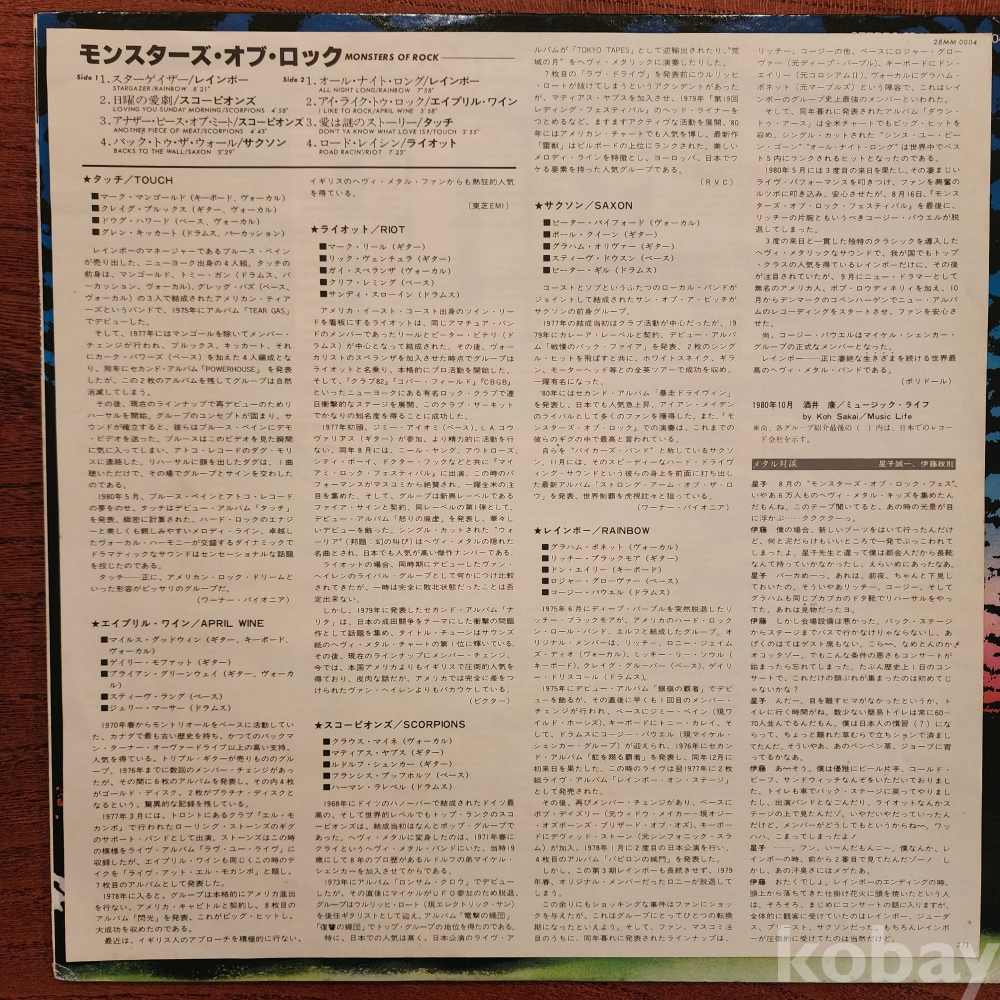 28MM 0004
モンスターズ・オブ・ロック MONSTERS OF ROCK
Side 1 1. スターゲイザー/レインボー
STARGAZER/RAINBOW 8'21"
2. 日曜の愛劇/スコーピオンズ
LOVING YOU SUNDAY MORNING/SCORPIONS 4'58"
3. アナザー・ピース・オブ・ミート/スコーピオンズ
ANOTHER PIECE OF MEAT/SCORPIONS 4'43"
4. バック・トゥ・ザ・ウォール/サクソン
BACKS TO THE WALL/SAXON 3'29"
Side 2 1. オール・ナイト・ロング/レインボー
ALL NIGHT LONG/RAINBOW 7'58"
2. アイ・ライク・トゥ・ロック/エイプリル・ワイン
I LIKE TO ROCK/APRIL WINE 3'58"
3. 愛は謎のストーリー/タッチ
DON'T YA KNOW WHAT LOVE IS?/TOUCH 3'55"
4. ロード・レイシン/ライオット
ROAD RACIN'/RIOT 7'23"
★タッチ/TOUCH
■マーク・マンゴールド(キーボード、ヴォーカル)
■クレイグ・ブルックス(ギター、ヴォーカル)
■ドウグ・ハワード(ベース、ヴォーカル)
■グレン・キッカート(ドラムス、パーカッション)
レインボーのマネージャーであるブルース・ペイン
が売り出した、ニューヨーク出身の4人組。タッチの
前身は、マンゴールド、トミー・ガン(ドラムス、パ
ーカッション、ヴォーカル)、グレッグ・バズ(ベース、
ヴォーカル)の3人で結成されたアメリカン・ティア
ーズというバンドで、1975年にアルバム「TEAR GAS」
でデビューした。
そして、1977年にはマンゴールを除いてメンバー・
チェンジが行われ、ブルックス、キッカート、それ
にカーク・パワーズ(ベース)を加えた4人編成とな
り、同年にセカンド・アルバム「POWERHOUSE」を発表
したが、この2枚のアルバムを残してグループは自然
消滅してしまう。
その後、現在のラインナップで再デビューのためリ
ハーサルを開始。グループのコンセプトが固まり、サ
ウンドが確立すると、彼らはブルース・ペインにデモ
・ビデオを送った。ブルースはこのビデオを見た瞬間
に気に入ってしまい、アトコ・レコードのダグ・モリ
スに連絡した。リハーサルに顔を出したダグは、1曲
聴いただけで、その場でグループとサインを交わした
のである。
1980年5月、ブルース・ペインとアトコ・レコード
の夢をのせ、タッチはデビュー・アルバム「タッチ」
を発表。緻密に計算された、ハード・ロックのエナジ
ーと美しくも親しみやすいメロディ・ライン、卓越し
たヴォーカル・ハーモニーが交錯するダイナミックで
ドラマティックなサウンドはセンセーショナルな話題
を投じたのである。
タッチ——正に、アメリカン・ロック・ドリームと
いった形容がピッサリのグループだ。
(ワーナー・パイオニア)
★エイプリル・ワイン/APRIL WINE
■マイルス・グッドウィン(ギター、キーボード、
ヴォーカル)
■ゲイリー・モファット(ギター)
■ブライアン・グリーンウェイ(ギター、ヴォーカ
ル)
■スティーヴ・ラング(ベース)
■ジェリー・マーサー(ドラムス)
1970年春からモントリオールをベースに活動してい
た、カナダで最も古い歴史を持ち、かつてのバックマ
ン・ターナー・オーヴァードライブ以上の高い支持、
人気を得ている。トリプル・ギターが売りもののグル
ープ。1976年までに数回のメンバー・チェンジがあっ
たが、その間に6枚のアルバムを発表し、その内4枚
がゴールド・ディスク、2枚がプラチナ・ディスクと
なるという、驚異的な記録を残している。
1977年3月には、トロントにあるクラブ『エル・モ
カンボ』で行われたローリング・ストーンズのギグ
のサポート・バンドとして出演。ストーンズはこの時
の模様をライヴ・アルバム「ラヴ・ユー・ライヴ」に
収録したが、エイプリル・ワインも同じくこの時のテ
イクを「ライヴ・アット・エル・モカンボ」と題し、
7枚目のアルバムとして発表した。
1978年に入ると、グループは本格的にアメリカ進出
を行ない、アメリカ・キャピトルと契約し、8枚目の
アルバム「閃光」を発表。これがビッグ・ヒットし、
大成功を収めたのである。
最近は、イギリス人のアプローチを積極的に行ない、
イギリスのヘヴィ・メタル・ファンからも熱狂的人気
を得ている。
(東芝EMI)
★ライオット/RIOT
■マーク・リール(ギター)
■リック・ヴェンチュラ(ギター)
■ガイ・スペランザ(ヴォーカル)
■クリフ・レミング(ベース)
■サンディ・スローイン(ドラムス)
アメリカ・イースト・コースト出身のツイン・リー
ドを看板にするライオットは、同じアマチュア・バン
ドのメンバーであったリールとピーター・ビテリ(ド
ラムス)が中心となって結成された。その後、ヴォー
カリストのスペランザを加入させた時点でグループは
ライオットと名乗り、本格的にプロ活動を開始した。
そして、『クラブ82』『コパー・フィールド』『CBGB』
といったニューヨークにある有名ロック・クラブで連
日衝撃的なステージを展開、このクラブ・サーキット
でかなりの知名度を得ることに成功した。
1977年初頭、ジミー・アイオミ(ベース)、LAコウ
ヴァリアス(ギター)が参加、より精力的に活動を行
ない、同年8月には、ニール・ヤング、アウトローズ、
シティ・ボーイ、ドクター・フックなどと共に『マイ
アミ・ロック・フェスティバル』に出演、この時のパ
フォーマンスがマスコミから絶賛され、一躍全米の注
目を集めた。そして、グループは新興レーベルである
ファイア・サインと契約、同レーベルの第1弾として、
デビュー・アルバム「怒りの廃虚」を発表し、華々し
いデビューを飾った。シングル・カットされた“ウォ
ーリア”(邦題:幻の叫び)はヘヴィ・メタルの隠れた
名曲とされ、日本でも人気が高い傑作ナンバーである。
ライオットの場合、同時期にデビューしたヴァン・
ヘイレンのライバル・グループとして何かにつけ比較
されてきたが、一時は完全に敗北状態だったことは否
定出来ない。
しかし、1979年に発表したセカンド・アルバム「ナ
リタ」は、日本の成田闘争をテーマにした衝撃の問題
作として話題を集め、タイトル・チューンはサウンズ
紙のヘヴィ・メタル・チャートの第1位に輝いている。
その後、現在のラインナップにメンバー・チェンジ、
今では、本国アメリカよりもイギリスで圧倒的人気を
得ており、皮肉な話だが、アメリカでは完全に差をつ
けられたヴァン・ヘイレンよりもバカウケしている。
(ビクター)
★スコーピオンズ/SCORPIONS
■クラウス・マイネ(ヴォーカル)
■マティアス・ヤプス(ギター)
■ルドルフ・シェンカー(ギター)
■フランシス・ブッフホルツ(ベース)
■ハーマン・ラレベル(ドラムス)
1968年にドイツのハノーバーで結成されたドイツ最
高の、そして世界的レベルでもトップ・ランクのスコ
ーピオンズは、結成当初はなんとポップ・グループで
あった。ヘヴィ・メタルに変身したのは、1971年春に
クライというヘヴィ・メタル・バンドにいた、当時19
歳にして8年のプロ歴があるルドルフの弟マイケル・
シェンカーを加入させてからである。
1973年にアルバム「ロンサム・クロウ」でデビュー
したが、その直後マイケルがUFO参加のため脱退、
グループはウルリッヒ・ロート(現エレクトリック・サン)
を後任ギタリストとして迎え、アルバム「電撃の蝎団」
「復讐の蝎団」でトップ・グループの地位を得たのである。
特に、日本での人気は高く、日本公演のライヴ・ア
ルバムが「TOKYO TAPES」として逆輸出されたり、“荒
城の月”をヘヴィ・メタリックに演奏したりした。
7枚目の「ラヴ・ドライヴ」を発表前にウルリッヒ
・ロートが抜けてしまうというアクシデントがあった
が、マティアス・ヤプスを加入させ、1979年「第19回
レディング・フェスティバル」のヘッド・ライナーを
つとめるなど、ますますアクティヴな活動を展開、'80
年にはアメリカン・チャートでも人気を博し、最新作
「雷獣」はビルボードの上位にランクされた。美しい
メロディ・ラインを特徴とし、ヨーロッパ、日本でウ
ケる要素を持った人気グループである。
(RVC)
★サクソン/SAXON
■ピーター・バイフォード(ヴォーカル)
■ポール・クイーン(ギター)
■グラハム・オリヴァー(ギター)
■スティーヴ・ドウスン(ベース)
■ピーター・ギル(ドラムス)
コーストとソブというふたつのローカル・バンドが
ジョイントして結成されたサン・オブ・ア・ビッチが
サクソンの前身グループ。
1977年の結成当初はクラブ活動が中心だったが、19
79年にカレーラ・レーベルと契約、デビュー・アルバ
ム「戦慄のバック・ファイア」を発表、2枚のシング
ル・ヒットを飛ばすと共に、ホワイトスネイク、ギラ
ン、モーターヘッド等との全英ツアーで成功を収め、
一躍有名になった。
'80年にはセカンド・アルバム「暴走ドライヴィン」
を発表し、日本でも人気急上昇、アイアン・メイデン
のライバルとして多くのファンを獲得した。また、『モ
ンスターズ・オブ・ロック』での演奏は、これまでの
彼らのギグの中で最高と言われている。
自らを“バイカーズ・バンド”と称しているサクソ
ン、11月には、そのスピーディーなハード・ドライヴ
ィング・サウンドという彼らの身上を前面に打ち出し
た最新アルバム「ストロング・アーム・オブ・ザ・ロ
ウ」を発表、世界制覇を虎視眈々と狙っている。
(ワーナー・パイオニア)
★レインボー/RAINBOW
■グラハム・ボネット(ヴォーカル)
■リッチー・ブラックモア(ギター)
■ドン・エイリー(キーボード)
■ロジャー・グローヴァー(ベース)
■コージー・パウエル(ドラムス)
1975年6月にディープ・パープルを突然脱退したリ
ッチー・ブラックモアが、アメリカのハード・ロック
ン・ロール・バンド、エルフと結成したグループ。オ
リジナル・メンバーは、リッチー、ロニー・ジェイム
ズ・ディオ(ヴォーカル)、ミッキー・リー・ソウル(
キーボード)、クレイグ・グルーバー(ベース)、ゲイリ
ー・ドリスコール(ドラムス)。
1975年にデビュー・アルバム「銀嶺の覇者」でデビ
ューを飾るが、その直後に早くも1回目のメンバー・
チェンジが行われ、ベースにジミー・ベイン(現ワ
イルド・ホーシズ)、キーボードにトニー・カレイ、そ
して、ドラムスにコージー・パウエル(現マイケル・
シェンカー・グループ)が迎えられ、1976年にセカン
ド・アルバム「虹を翔る覇者」を発表し、同年12月に
初来日を果たした。この時のライヴは翌1977年に2枚
組ライヴ・アルバム「レインボー・オン・ステージ」
として発売された。
その後、再びメンバー・チェンジがあり、ベースに
ボブ・デイズリー(元ウィドウ・メイカー—現オジー
・オズボーンズ・ブリザード・オブ・オズ)、キーボー
ドにデヴィッド・ストーン(元シンフォニック・スラ
ム)が加入、1978年1月に2度目の日本公演を行い、
4枚目のアルバム「バビロンの城門」を発表した。
しかし、この第3期レインボーも長続きせず、1979
年春、オリジナル・メンバーだったロニーが脱退して
しまう。
この余りにもショッキングな事件はファンにショッ
クを与えたが、これはグループにとってひとつの転換
期になったといえよう。そして、ファン、マスコミ注
目のうちに、同年暮れに発表されたラインナップは、
リッチー、コージーの他、ベースにロジャー・グロー
ヴァー(元ディープ・パープル)、キーボードにドン・
エイリー(元コロシアムII)、ヴォーカルにグラハム・
ボネット(元マーブルズ)という陣容で、これはレイ
ンボーのグループ史上最強のメンバーといわれた。
そして、同年暮れに発売されたアルバム「ダウン・
トゥ・アース」は全米チャートでもビッグ・ヒットを
収め、シングル・カットされた“シンス・ユー・ビー
ン・ゴーン”“オール・ナイト・ロング”は世界中でベス
ト5内にランクされるヒットとなったのである。
1980年5月には3度目の来日を果たし、その凄まじい
ライヴ・パフォーマンスを叩きつけ、ファンを興奮の
ルツボに叩き込み、安心させたが、8月16日、『モンス
ターズ・オブ・ロック・フェスティバル』を最後に、
リッチーの片腕ともいうべきコージー・パウエルが脱
退してしまった。
3度の来日と一貫した独特のクラシックを導入した
ヘヴィ・メタリックなサウンドで、我が国でもトップ
・クラスの人気を得ているレインボーだけに、その後
が注目されていたが、9月にニュー・ドラマーとして
無名のアメリカ人、ボブ・ロウディネリィを加え、10
月からデンマークのコペンハーゲンでニュー・アルバ
ムのレコーディングをスタートさせ、ファンを安心さ
せた。
尚、コージー・パウエルはマイケル・シェンカー・
グループの正式なメンバーとなった。
レインボー——正に凄絶な生きざまを続ける世界最
高のヘヴィ・メタル・バンドである。
(ポリドール)
1980年10月 酒井 康/ミュージック・ライフ
by Koh Sakai/Music Life
※尚、各グループ紹介最後の( )内は、日本でのレコー
ド会社を示す。
メタル対談 星子誠一、伊藤政則
星子 8月の“モンスターズ・オブ・ロック・フェス”、
いやあ6万人ものヘヴィ・メタル・キッズを集めたん
だもんね。このテープ聞いてると、あの時の光景が目
に浮かぶ……ククククーっ。
伊藤 僕の場合、新しいブーツをはいて行ったんだけ
ど、何と泥だらけもいいところで一発でぶっこわれて
しまったよ。星子先生と違って僕は都会人だから長靴
なんて持っていかなかったし、えらいめにあったなあ。
星子 バーカめーっ。あれは、前夜、ちゃんと下見し
ておいたの。そういやありリッチー、コージー、そして
グラハムも同じブカブカのドタ靴でリハーサルをやっ
てた。あれは見物だったヨ。
伊藤 しかし会場設備は悪かった。バック・ステージ
からステージまでバスで行かなけりゃならないし、あ
げくのはてはゲスト席もない。こら〜、なめとんのか、
オコッタゾー。でもこんな条件の悪さもコンサートが
始まったら忘れてしまった。たぶん歴史上1日のコン
サートで、これだけの顔ぶれが集まったのは初めてじ
ゃないかな?
星子 んだー。目を離すヒマがなかったというか、ト
イレに行く時間がね。数少ない簡易トイレは常に60〜
70人並んでるんだもん。僕は日本人の慣習(?)になら
って、ちょっと離れた草むらで立ちションで済まし
てたんだ。そういやあ、あのペンペン草、ジョーブに育
ってるかなあ。
伊藤 あ〜そう。僕は優雅にビール片手、コールド・
ビーフ、サンドウィッチなんぞをいただいておりまし
た。トイレも車でバック・ステージに戻ってやりまし
たし、出演バンドとなごんだり、ライオットなんかス
テージの上で見たんだゾ。いやだいやだっていったん
だけど、メンバーがどうしてもというからね〜、ワッ
ハハ、こまってしまったよノ
星子 ……。フン、いーんだもんニー。僕なんか、レ
インボーの時、前から2番目で見てたんだゾーノ し
かし、あの汗臭さにはメゲたあ。
伊藤 おたくでしょ。レインボーのエンディングの時、
頭上から落ちてきた仕掛け花火に頭を焼いたという人
は。そろそろ、まじめにコンサートの話に入りますが、
全体的に観客に受けていたのはレインボー、ジューダ
ス・プリースト、サクソンだった。もちろんレインボ
ーが圧倒的に受けてたのは当然だけど。
kobay